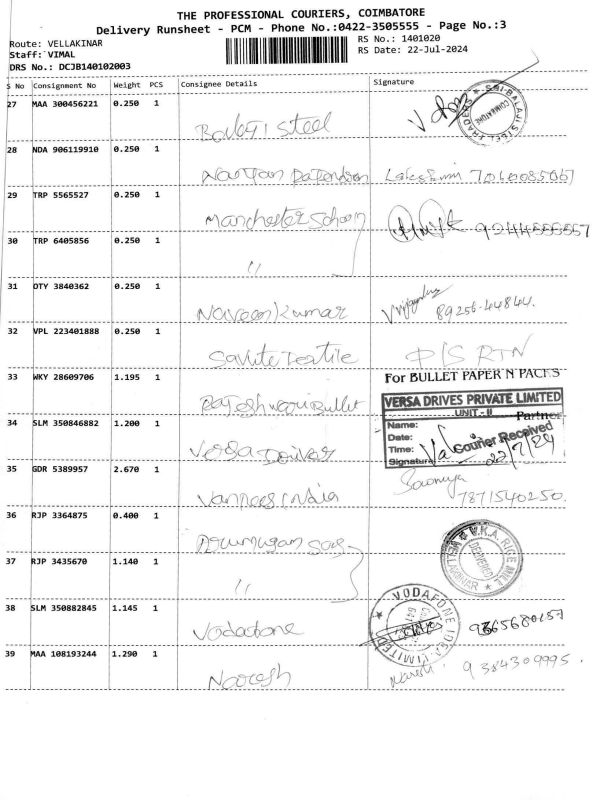 THE PROFESSIONAL COURIERS, COIMBATORE
Delivery Runsheet - PCM - Phone No.:0422-3505555 - Page No.:3
Route: VELLAKINAR
RS No.: 1401020
Staff: VIMAL
RS Date: 22-Jul-2024
DRS No.: DCJB140102003
S No Consignment No Weight PCS Consignee Details Signature
27 MAA 300456221 0.250 1
Balaji Steel
SRI BALAJI STEEL TRADERS
COIMBATORE
28 NDA 906119910 0.250 1
29 TRP 5565527 0.250 1
Manchester School
30 TRP 6405856 0.250 1
"
31 OTY 3840362 0.250 1
Naveen Kumar
89256-44844.
32 VPL 223401888 0.250 1
RTN
33 WKY 28609706 1.195 1
For BULLET PAPER N PACKS
Partner
34 SLM 350846882 1.200 1
Versa Driver
VERSA DRIVES PRIVATE LIMITED
UNIT - II
Name:
Date:
Time:
Signature
Courier Received
22/7/24
35 GDR 5389957 2.670 1
India
7871540250.
36 RJP 3364875 0.400 1
37 RJP 3435670 1.140 1
"
V.K.A. RICE MILL
VELLAKINAR
38 SLM 350882845 1.145 1
Vodafone
VODAFONE IDEA LIMITED
39 MAA 108193244 1.290 1
Naresh
Naresh. 9384309995.